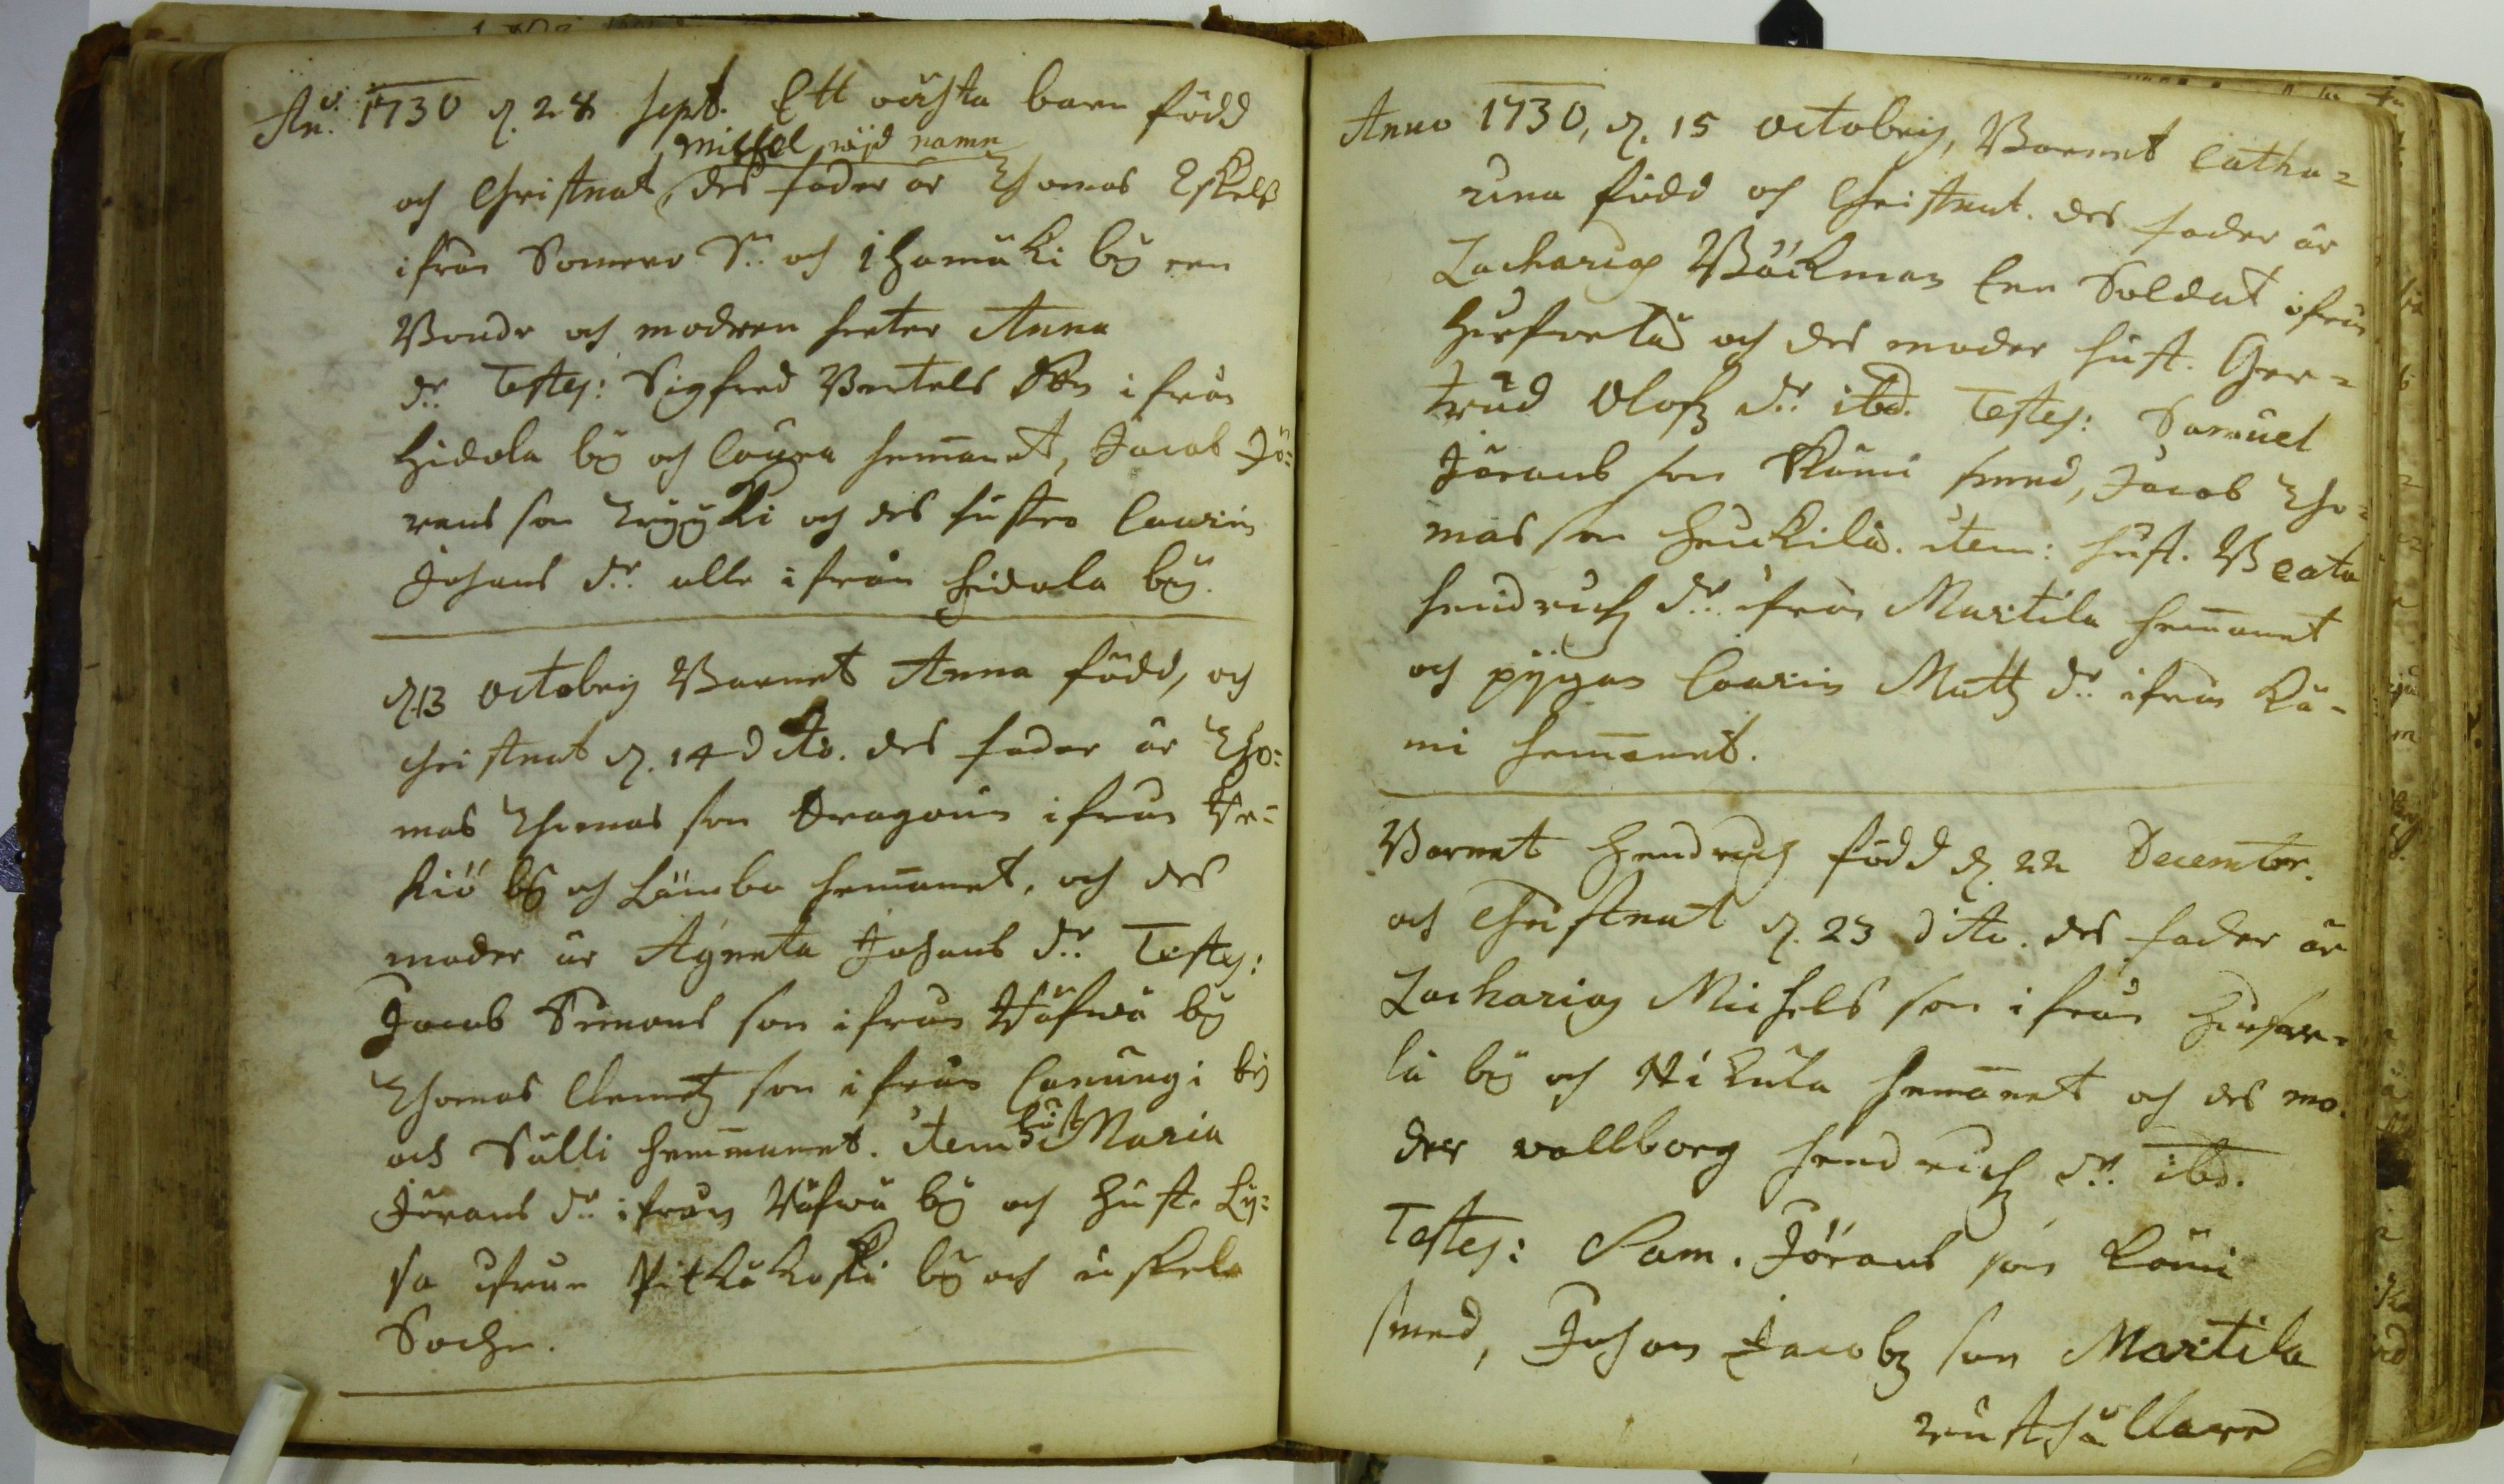 An. 1730 d. 28 Sept. Ett oächta barn född
Michel wijd namn
och Christnat, des fader är Thomas Eskels
ifrån Somero Sn. och ihamäki by een
Bonde och modren heeter Anna
dr. Testes: Sigfred Bertels son ifrån
Hidola by och Caupa hemanet, Jacob Jö-
rans son Tryyki och des hustro Caarin
Johans dr. alle ifrån Hidola by.
d. 13 octobris Barnet Anna född, och
christnat d. 14 dito. des fader är Tho-
mas Thomas son Dragoun ifrån
kiö by och Lämbo hemanet, och des
moder är Agneta Johans dr. Testes:
Jacob Simons son ifrån by
Thomas Clemetz son ifrån Canungi by
och Sälli hemmanet. item hust. Maria
Jörans dr. ifrån by och Hust. Ly-
sa ifrån Pitkäkoski by och uskela
Sochn.
Anno 1730, d. 15 octobris, Barnet Catha-
rina född och Christnat. des fader är
Zacharias Bäckman Een Soldat ifrån
Hirsvelä och des moder hust. Ger-
trud Olofz dr. ibd. Testes: Samuel
Jörans son Kämi smed, Jacob Tho-
mas son Heickilä. item: hust. Beata
Hendrichz dr. ifrån Martila hemanet
och pijgan Caarin Mattz dr. ifrån Kä-
mi hemanet.
Barnet Hendrich född d. 22 December.
och Christnat d. 23 dito. des fader är
Zacharias Michels son ifrån Hirsve-
lä by och Nikula hemanet och des mo-
der wallborg Hendrichz dr. ibd.
Testes: Sam. Jörans son Kämi
smed, Johan Jacobz son Martila
rusthållare